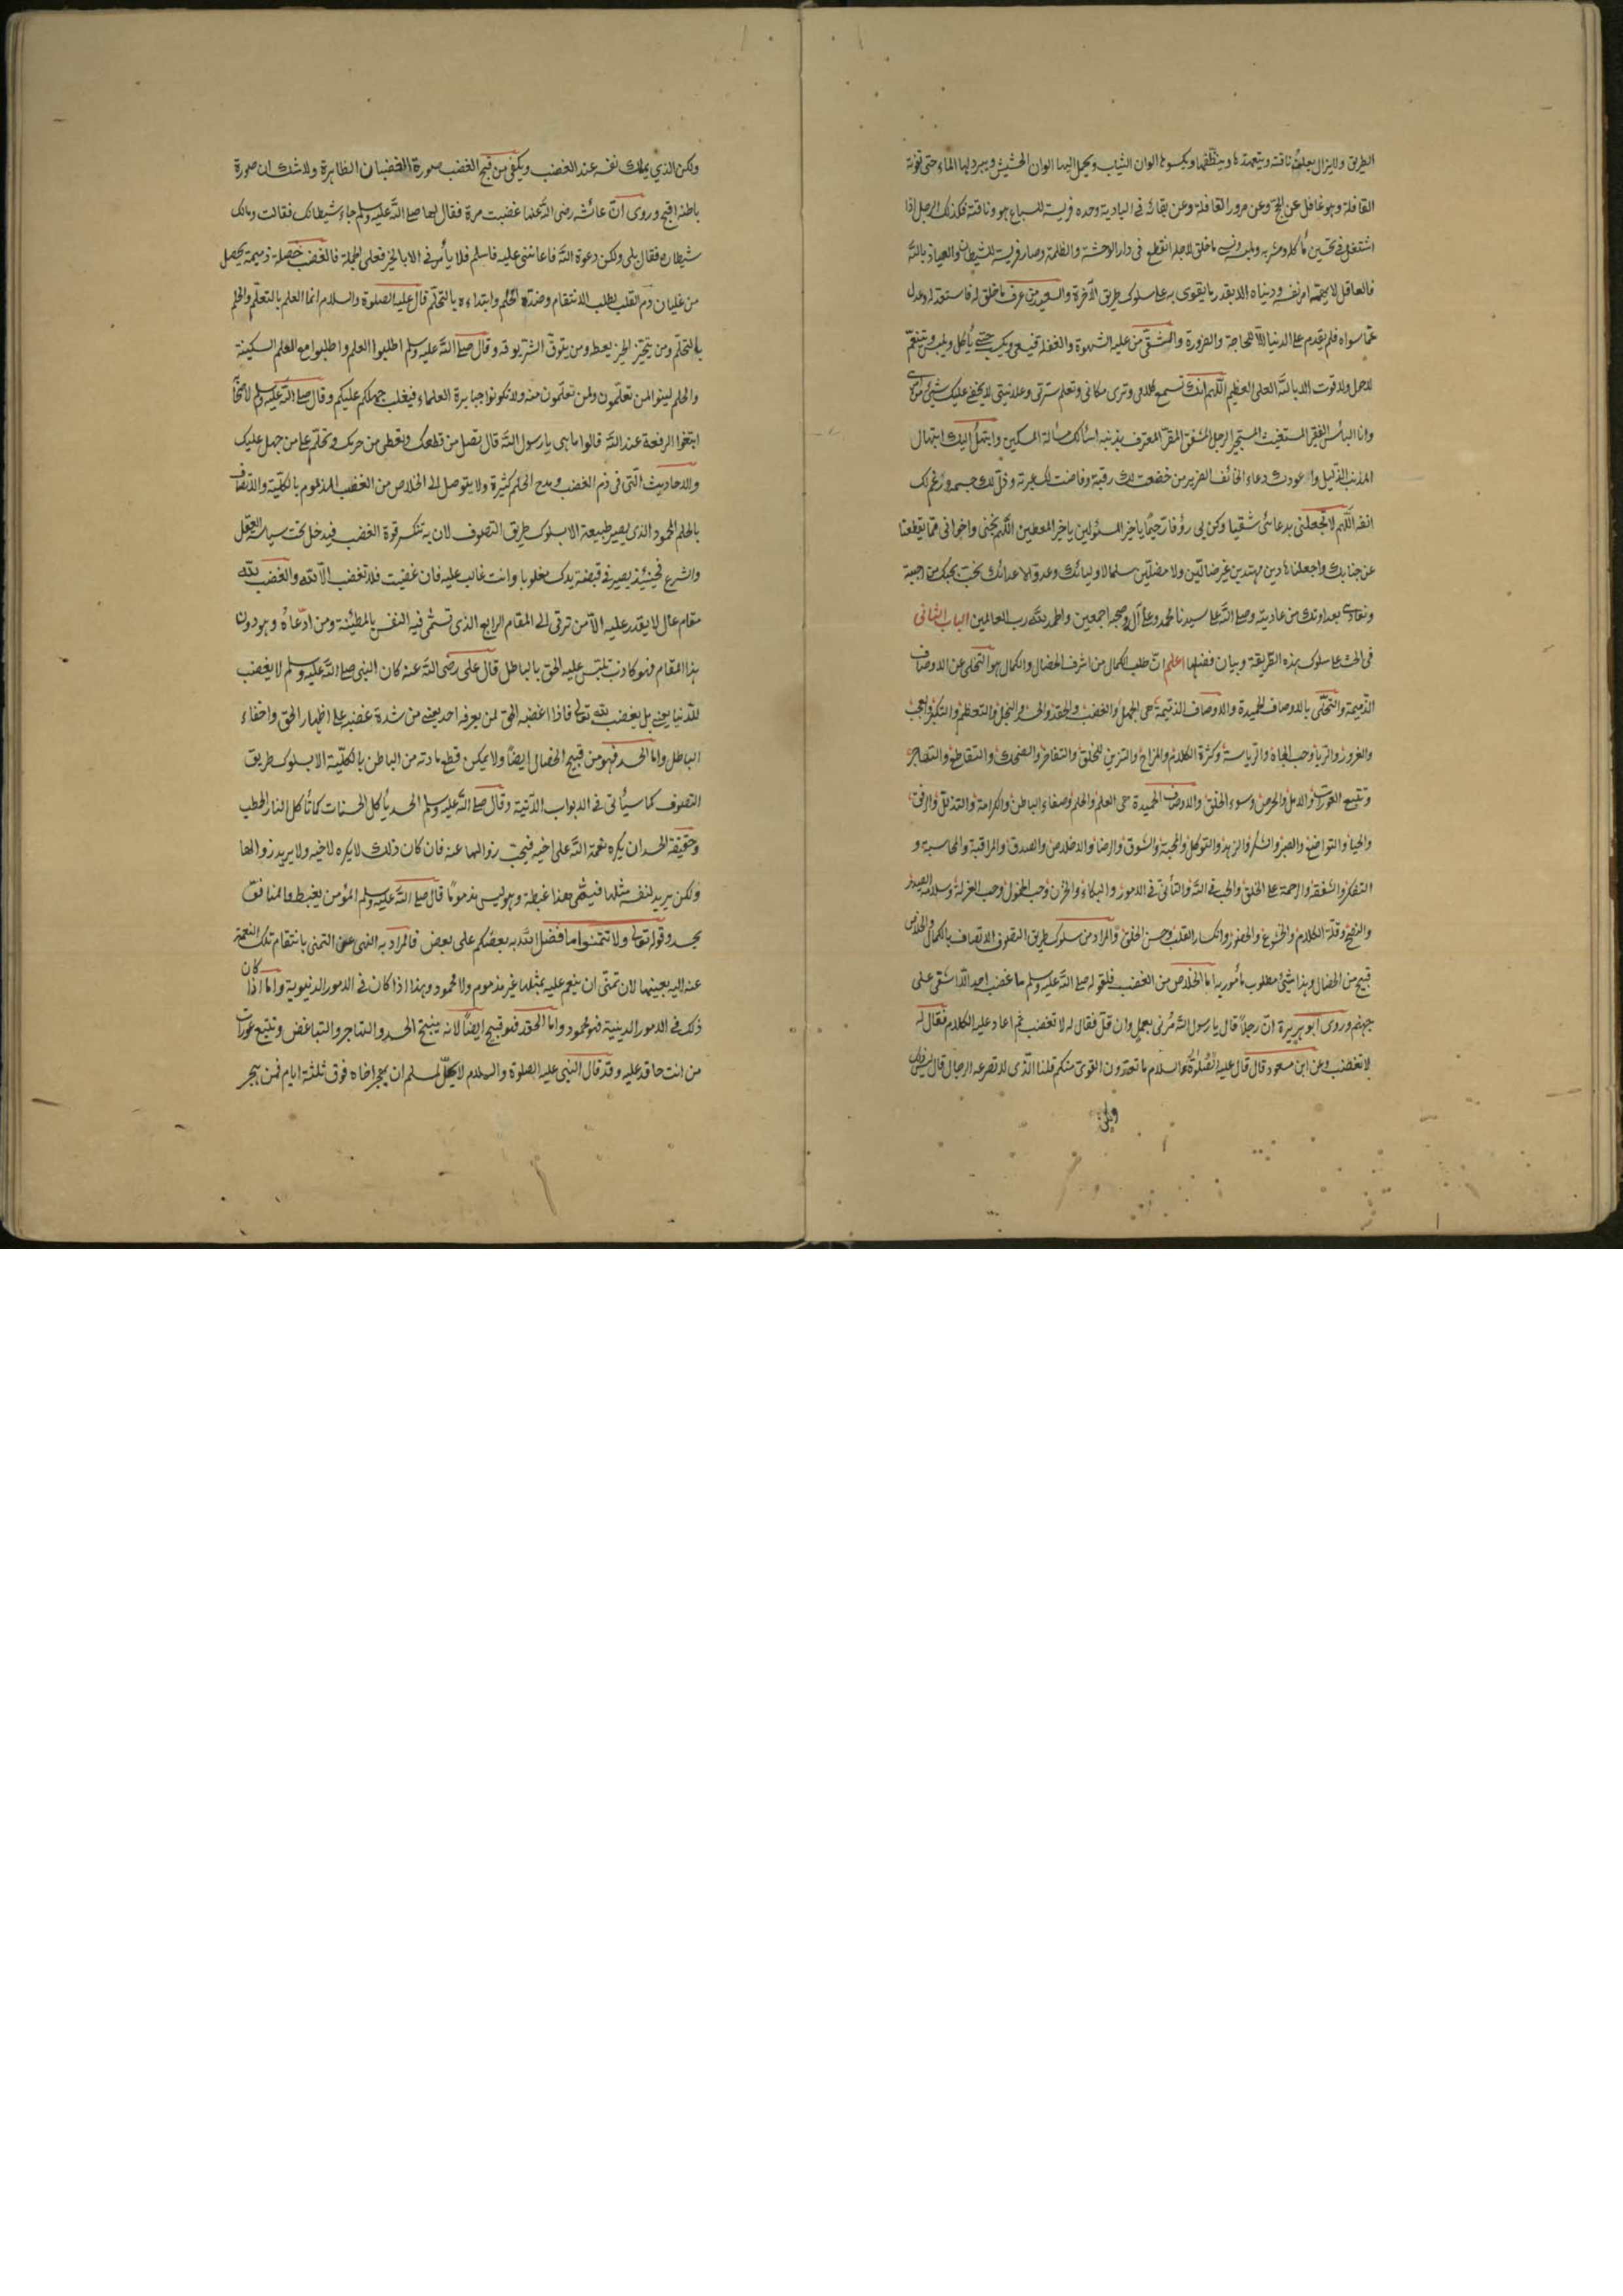 الطريق ولا يزال يعلف ناقته ويتعهدها وينظفها ويكسوها الوان الثياب ويحمل اليها الوان الحشيش ويبرد لها الماء حتى تفوته
القافلة وهو غافل عن الحج وعن مرور القافلة وعن بقائه في البادية وحده فريسة للسباع هو وناقته فكذلك الرجل اذا
اشتغل في تحسين مأكله ومشربه وملبسه ونسي ما خلق لاجله انقطع في دار الوحشة والظلمة وصار فريسة للشيطان والعياذ بالله
فالعاقل لا يهمه امر نفسه ودنياه الا بقدر ما يقوى به على سلوك طريق الآخرة والسعيد من عرف ما خلق له فاستعد له وعدل
عما سواه فلم يقدم على الدنيا الا للحاجة والضرورة والشقي من غلبه الشهوة والغفلة فيسعى ويكسب حتى يأكل ويلبس ويتنعم
لا حول ولا قوت الا بالله العلي العظيم اللهم انك تسمع كلامي وترى مكاني وتعلم سرتي وعلانيتي لا يخفى عليك شيئ من امري
وانا البائس الفقير المستغيث المستجير الوجل المشفق المقر المعترف بذنبه اسألك مسألة المسكين وابتهل اليك ابتهال
المذنب الذليل وادعوك دعاء الخائف الضرير من خضعت لك رقبته وفاضت لك عبرته وذل لك جسمه ورغم لك
انفه اللهم لا تجعلني بدعائي شقيا وكن بي رؤفا رحيما يا خير المسئولين يا خير المعطين اللهم نجني واخواني مما يقطعنا
عن جنابك واجعلنا هادين مهتدين غير ضالين ولا مضلين سلما لاوليائك وعدوا لاعدائك نحب بحبك من احببته
ونعادي بعداوتك من عاديته وصلى الله على سيدنا محمد وعلى آله وصحبه اجمعين والحمد لله رب العالمين الباب الثاني
في الحث على سلوك هذه الطريقة وبيان فضلها اعلم ان طلب الكمال من اشرف الخصال والكمال هو التخلي عن الاوصاف
الذميمة والتحلي بالاوصاف الحميدة والاوصاف الذميمة هي الجهل والغضب والحقد والحسد والبخل والتعظم والتكبر والعجب
والغرور والريا وحب الجاه والرياسة وكثرة الكلام والمزاح والتزين للخلق والتفاخر والضحك والتقاطع والتهاجر
وتتبع العورات والامل والحرص وسوء الخلق والاوصاف الحميدة هي العلم والحلم وصفاء الباطن والكرامة والتذلل والرفق
والحيا والتواضع والصبر والشكر والزهد والتوكل والمحبة والشوق والرضا والاخلاص والصدق والمراقبة والمحاسبة و
التفكر والشفقة والرحمة على الخلق والحب في الله والتأني في الامور والبكاء والحزن وحب الخمول وحب العزلة وسلامة الصدر
والنصح وقلة الكلام والخشوع والحضور وانكسار القلب وحسن الخلق والمراد من سلوك طريق التصوف الاتصاف بالكمال والخلاص
قبيح من الخصال وهذا شيئ مطلوب مأمور به اما الخلاص من الغضب فلقوله صلى الله عليه وسلم ما غضب احد الا اشقى على
جهنم وروى ابو هريرة ان رجلا قال يا رسول الله مرني بعمل وان قل فقال له لا تغضب ثم اعاد عليه الكلام فقال له
لا تغضب وعن ابن مسعود قال قال عليه الصلوة والسلام ما تعدون القوي منكم قلنا الذي لا تصرعه الرجال قال ليس ذلك
ولكن
ولكن الذي يملك نفسه عند الغضب ويكفي من قبح الغضب صورة الغضبان الظاهرة ولا شك ان صورة
باطنه اقبح وروى ان عائشة رضى الله عنها غضبت مرة فقال لها صلى الله عليه وسلم جاء شيطانك فقالت ومالك
شيطان فقال بلى ولكن دعوة الله فاعانني عليه فاسلم فلا يأمرني الا بالخير فعلى الجملة فالغضب خصلة ذميمة تحصل
من غليان دم القلب بطلب الانتقام وضده الحلم وابتداءه بالتحلم قال عليه الصلوة والسلام انما العلم بالتعلم والحلم
بالتحلم ومن يتخير الخير يعطه ومن يتوق الشر يوقه وقال صلى الله عليه وسلم اطلبوا العلم واطلبوا مع العلم السكينة
والحلم لينوا لمن تعلمون ولمن تعلمون منه ولا تكونوا جبابرة العلماء فيغلب جهلكم عليكم وقال صلى الله عليه وسلم
ابتغوا الرفعة عند الله قالوا ما هي يا رسول الله قال تصل من قطعك وتعطي من حرمك وتحلم على من جهل عليك
والاحاديث التي في ذم الغضب ومدح الحلم كثيرة ولا يتوصل الى الخلاص من الغضب المذموم بالكلية والاتصاف
بالحلم المحمود الذي يصير طبيعة الا بسلوك طريق التصوف لان به تنكسر قوة الغضب فيدخل تحت سياسة العقل
والشرع فحينئذ يصير في قبضة يدك مغلوبا وانت غالب عليه فان غضبت فلا تغضب الا لله والغضب لله
مقام عال لا يقدر عليه الا من ترقى الى المقام الرابع الذي تسمى فيه النفس بالمطمئنة ومن ادعاه وهو دون
هذا المقام فهو كاذب تلبس عليه الحق بالباطل قال علي رضى الله عنه كان النبي صلى الله عليه وسلم لا يغضب
للدنيا يعني بل يغضب لله تعالى فاذا اغضبه الحق لمن يعرفه احد يعني من شدة غضبه على اظهار الحق واخفاء
الباطل واما الحسد فهو من قبيح الخصال ايضا ولا يمكن قطع مادته من الباطن بالكلية الا بسلوك طريق
التصوف كما سيأتي في الابواب الآتية وقال صلى الله عليه وسلم الحسد يأكل الحسنات كما تأكل النار الحطب
وحقيقة الحسد ان يكره نعمة الله على اخيه فيحب زوالها عنه فان كان ذلك لا يكره لاخيه ولا يريد زوالها
ولكن يريد لنفسه مثلها فيسمى هذا غبطة وهو ليس بذموما قال صلى الله عليه وسلم المؤمن يغبط والمنافق
يحسد وقوله تعالى ولا تتمنوا ما فضل الله به بعضكم على بعض فالمراد به النهي عن التمني بانتقام تلك النعمة
عنه اليه بعينها لان تمنى ان ينعم عليه بمثلها غير مذموم ولا محمود وهذا اذا كان في الامور الدنيوية واما اذا كان
ذلك في الامور الدينية فهو محمود واما الحقد فهو قبيح ايضا لانه ينتج الحسد والتهاجر والتباغض وتتبع عورات
من انت حاقد عليه وقد قال النبي عليه الصلوة والسلام لا يحل لمسلم ان يهجر اخاه فوق ثلثة ايام فمن هجر